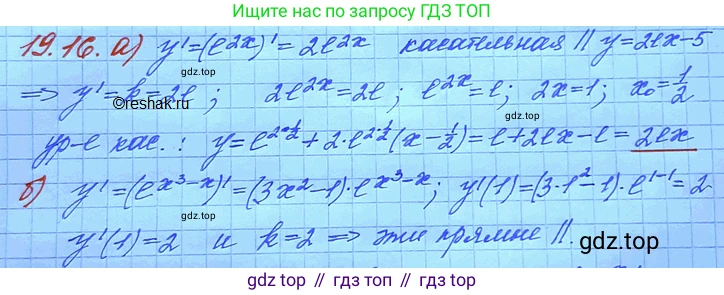 Ищите нас по запросу ГДЗ ТОП
19.16. а) y'=(e^{2x})'=2e^{2x} касательная || y=2ex-5
gdz.top
=> y'=k=2e; 2e^{2x}=2e; e^{2x}=e; 2x=1; x₀=1/2
©reshak.ru
ур-е кас.: y=e^{2·1/2}+2·e^{2·1/2}(x-1/2)=e+2ex-e=2ex
б) y'=(e^{x³-x})'=(3x²-1)·e^{x³-x}; y'(1)=(3·1²-1)·e^{1-1}=2
gdz.top
y'(1)=2 и k=2 => эти прямые ||.
gdz.top
gdz.top // гдз.топ // gdz.top // гдз.топ // gdz.top